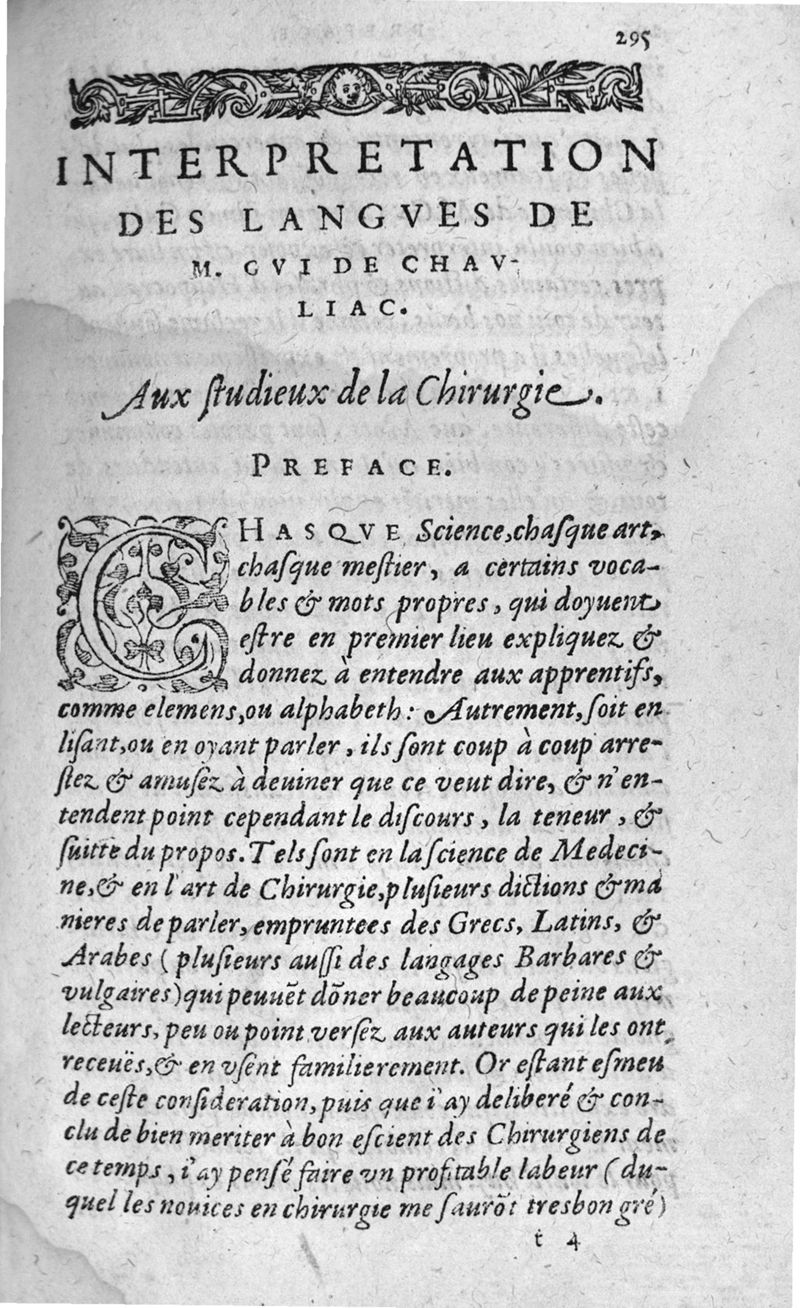 295
INTERPRETATION
DES LANGVES DE
M. GVI DE CHAV-
LIAC.
Aux ſtudieux de la Chirurgie.
PREFACE.
CHASQVE Science, chaſque art,
chaſque meſtier, a certains voca-
bles & mots propres, qui doyuent
eſtre en premier lieu expliquez &
donnez à entendre aux apprentifs,
comme elemens, ou alphabeth: Autrement, ſoit en
liſant, ou en oyant parler, ils ſont coup à coup arre-
ſtez & amuſez à deuiner que ce veut dire, & n'en-
tendent point cependant le diſcours, la teneur, &
ſuitte du propos. Tels ſont en la ſcience de Medeci-
ne, & en l'art de Chirurgie, pluſieurs dictions & ma
nieres de parler, empruntees des Grecs, Latins, &
Arabes (pluſieurs auſſi des langages Barbares &
vulgaires) qui peuuēt dōner beaucoup de peine aux
lecteurs, peu ou point verſez aux auteurs qui les ont
receuës, & en vſent familierement. Or eſtant eſmeu
de ceſte conſideration, puis que i'ay deliberé & con-
clu de bien meriter à bon eſcient des Chirurgiens de
ce temps, i'ay penſé faire vn profitable labeur (du-
quel les nouices en chirurgie me ſaurōt tresbon gré)
t 4